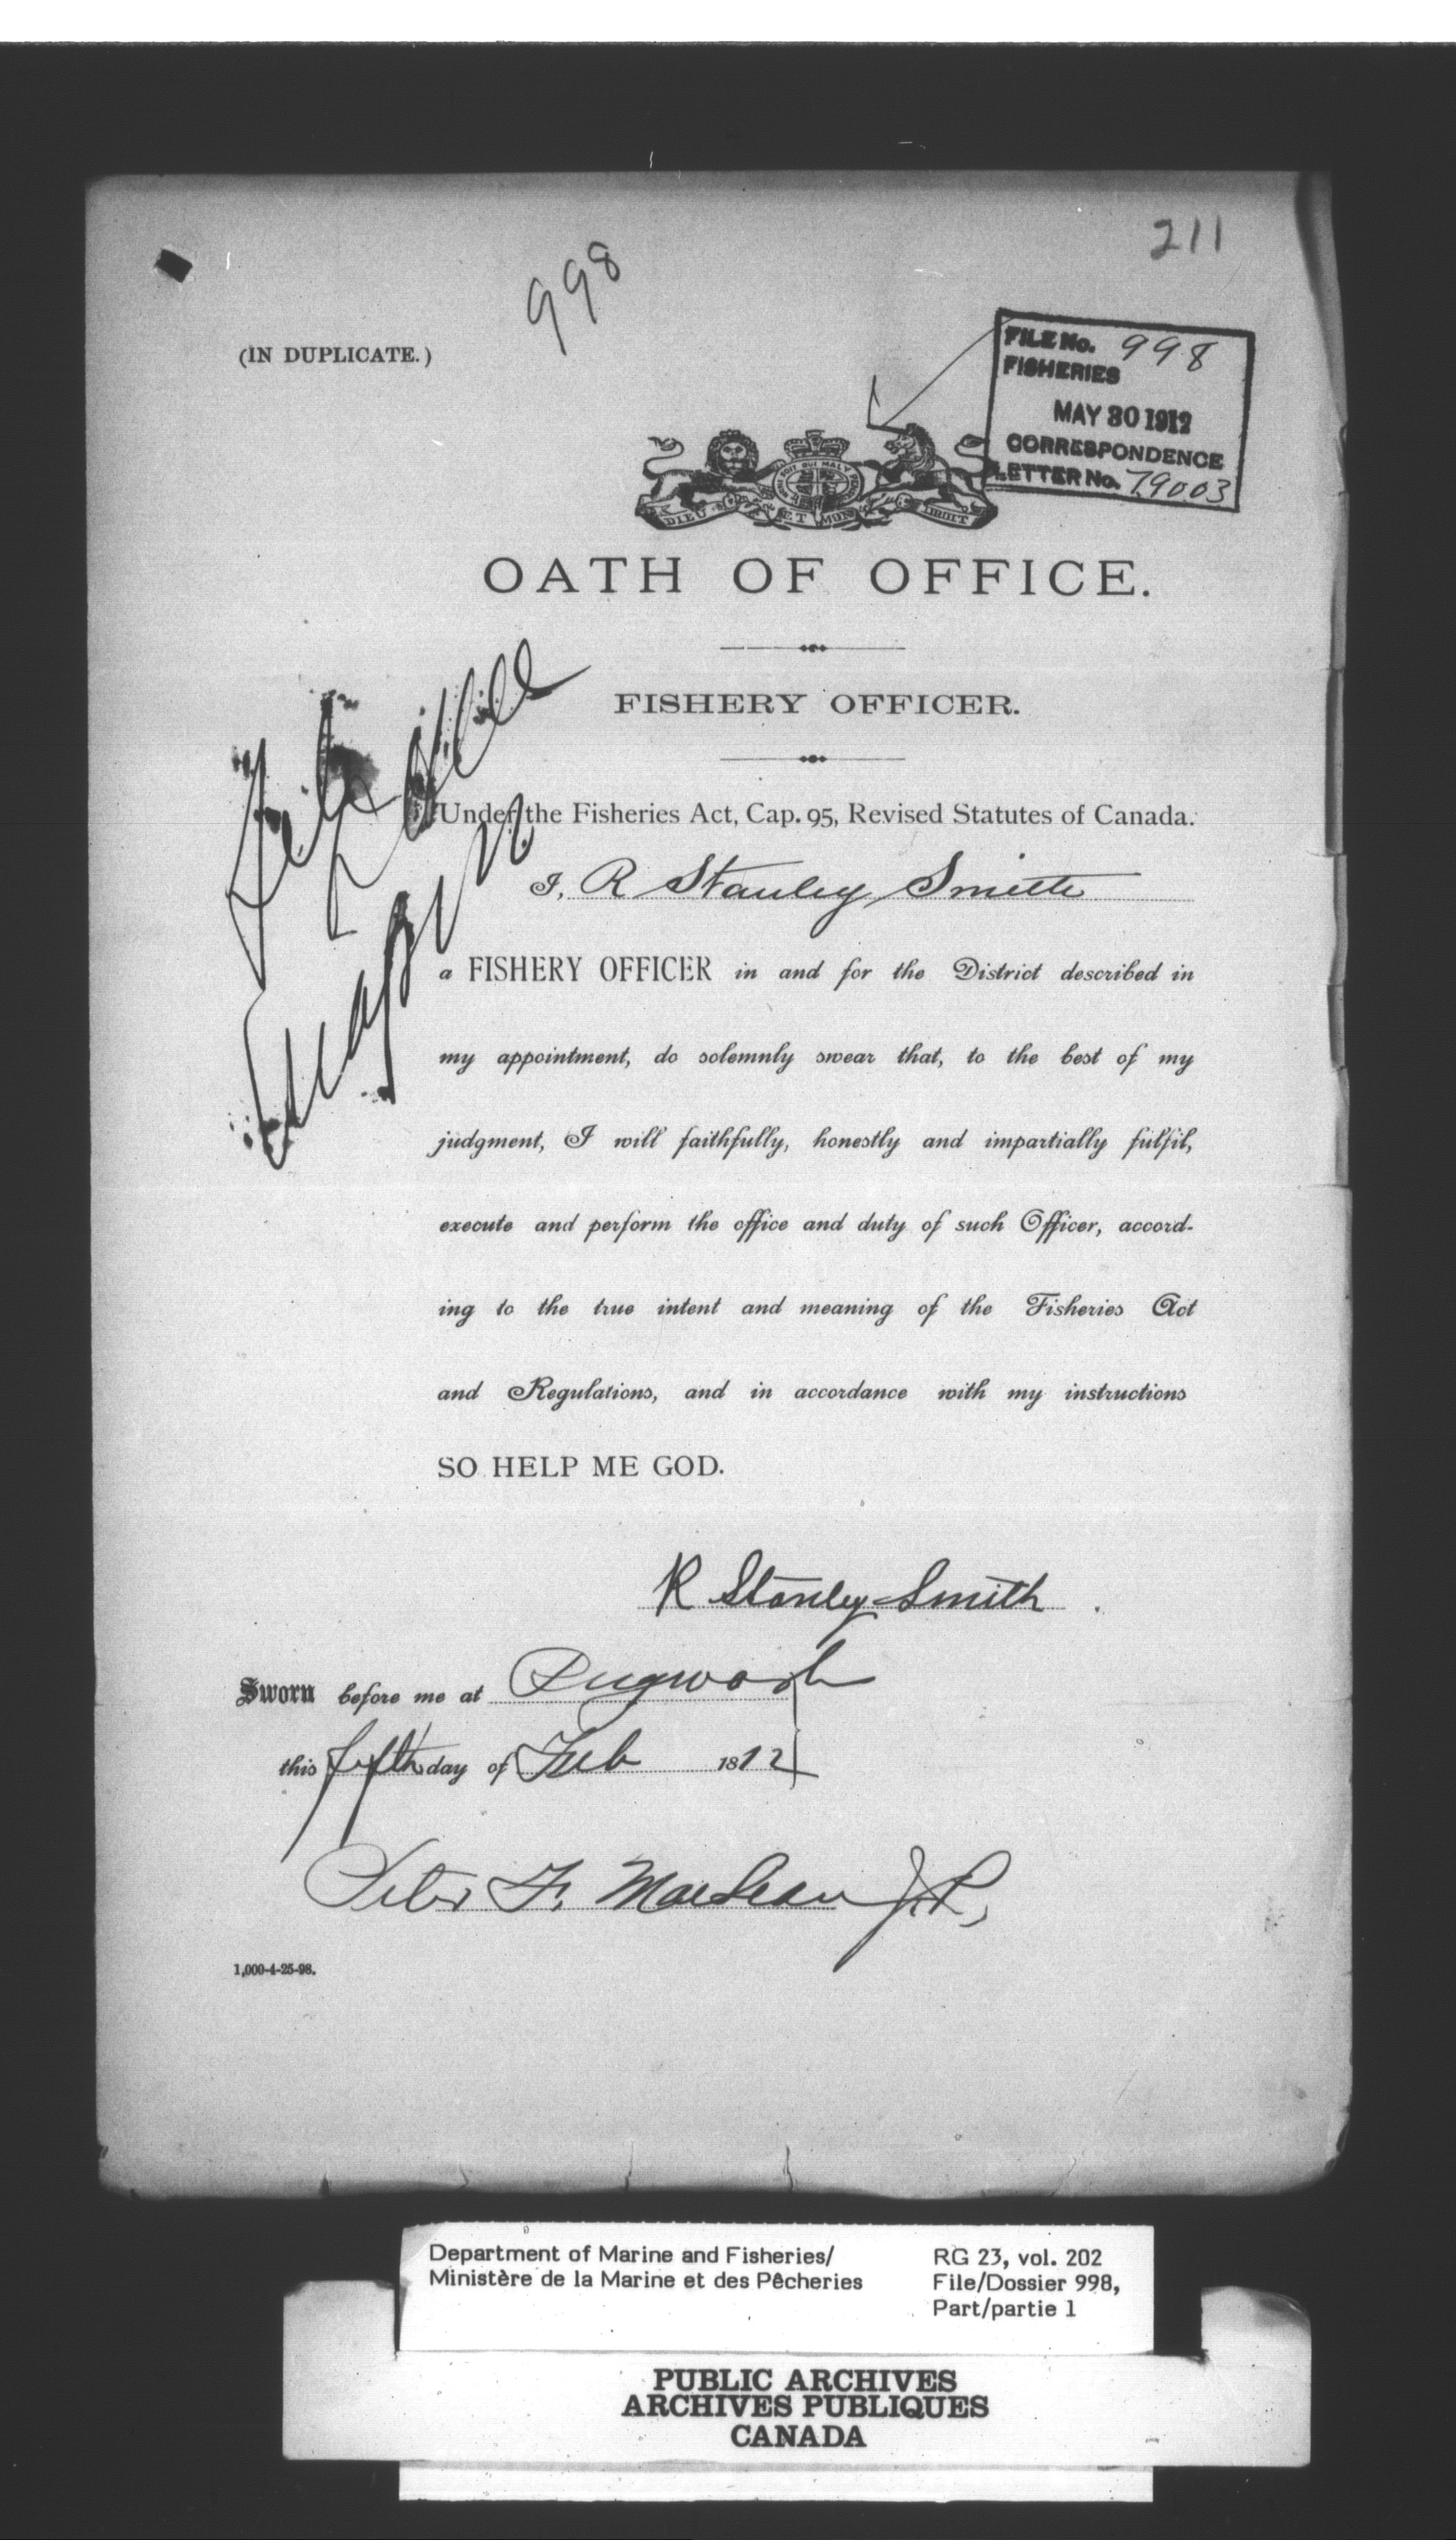 211
998
(IN DUPLICATE.)
FILE No. 998
FISHERIES
MAY 30 1912
CORRESPONDENCE
LETTER No. 79003
HONI SOIT QUI MAL Y PENSE
DIEU ET MON DROIT
OATH OF OFFICE.
FISHERY OFFICER.
File
Under the Fisheries Act, Cap. 95, Revised Statutes of Canada.
I, R Stanley Smith
a FISHERY OFFICER in and for the District described in
my appointment, do solemnly swear that, to the best of my
judgment, I will faithfully, honestly and impartially fulfil,
execute and perform the office and duty of such Officer, accord-
ing to the true intent and meaning of the Fisheries Act
and Regulations, and in accordance with my instructions
SO HELP ME GOD.
R Stanley Smith
Sworn before me at Pugwash
this fifth day of Feb 1812
Peter F. MacLean J.P,
1,000-4-25-98.
Department of Marine and Fisheries/
Ministère de la Marine et des Pêcheries
RG 23, vol. 202
File/Dossier 998,
Part/partie 1
PUBLIC ARCHIVES
ARCHIVES PUBLIQUES
CANADA